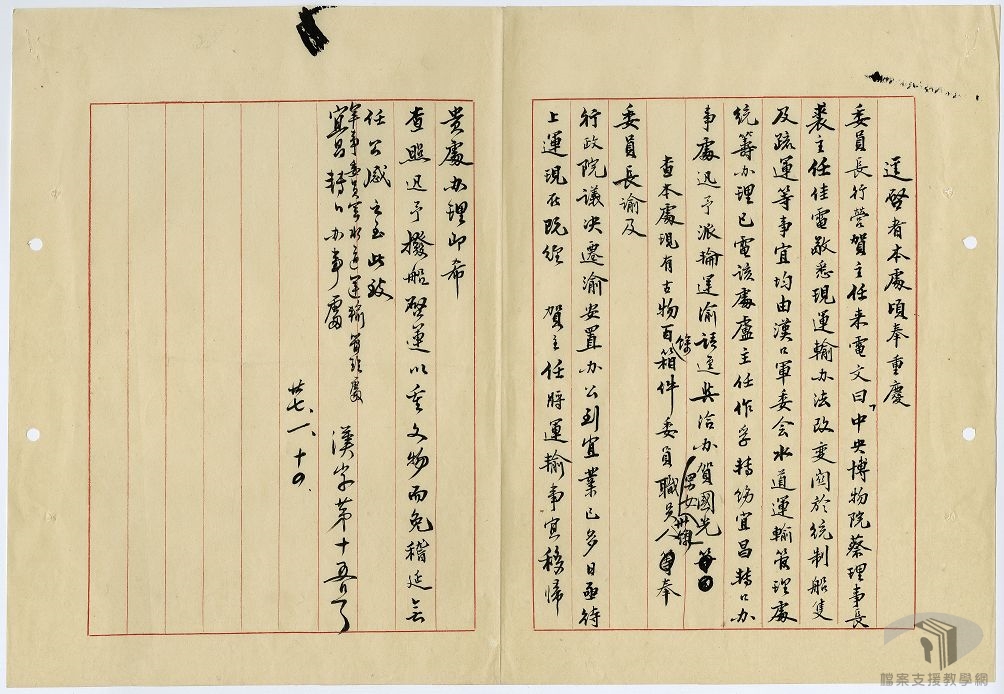 逕啓者本處頃奉重慶
委員長行營賀主任來電文曰「中央博物院蔡理事長
裘主任佳電敬悉現運輸办法改変関於統制船隻
及疏運等事宜均由漢口軍委会水道運輸管理處
統籌办理已電該處盧主任作孚轉飭宜昌轉口办
事處迅予派輪運渝請逕與洽办賀國光
查本處現有古物百餘箱件委員職員男女人奉
委員長諭及
行政院議决遷渝安置办公到宜業已多日亟待
上運現在既經 賀主任將運輸事宜移歸
貴處办理即希
查照迅予撥船啓運以重文物而免稽延無
任公感之至此致
軍事委員會水道運輸管理處
宜昌轉口办事處
漢字第十五号
廿七、一、十四、
檔案支援教學網